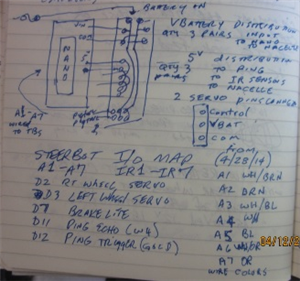 BATTERY IN
V BATTERY DISTRIBUTION
QTY 3 PAIRS INPUT
TO NANO
TO NACELLE
5V DISTRIBUTION
QTY 3 TO PING
TO IR SENSORS
TO NACELLE
2 SERVO
NANO
5V
A1-A7
WIRED
TO
2
Control
VBAT
COM
STEERBOT I/O MAP
from
(4/28/14)
A1-A7 IR1-IR7
A1 WH/BRN
D2 RT WHEEL SERVO
A2 BRN
D3 LEFT WHEEL SERVO
A3 WH/BL
D7 BRAKE LITE
A4 WH
D11 PING ECHO
A5 BL
D12 PING TRIGGER (GOLD)
A6 WH/OR
A7 OR
WIRE COLORS
04/12/2